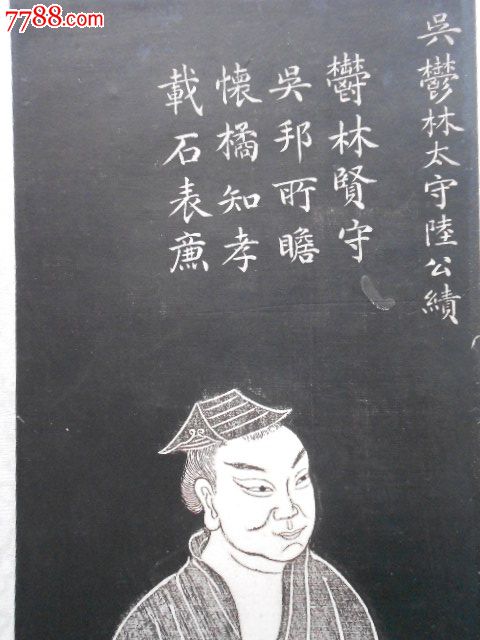 7788.com
吳鬱林太守陸公績
鬱林賢守
吳邦所瞻
懷橘知孝
載石表廉